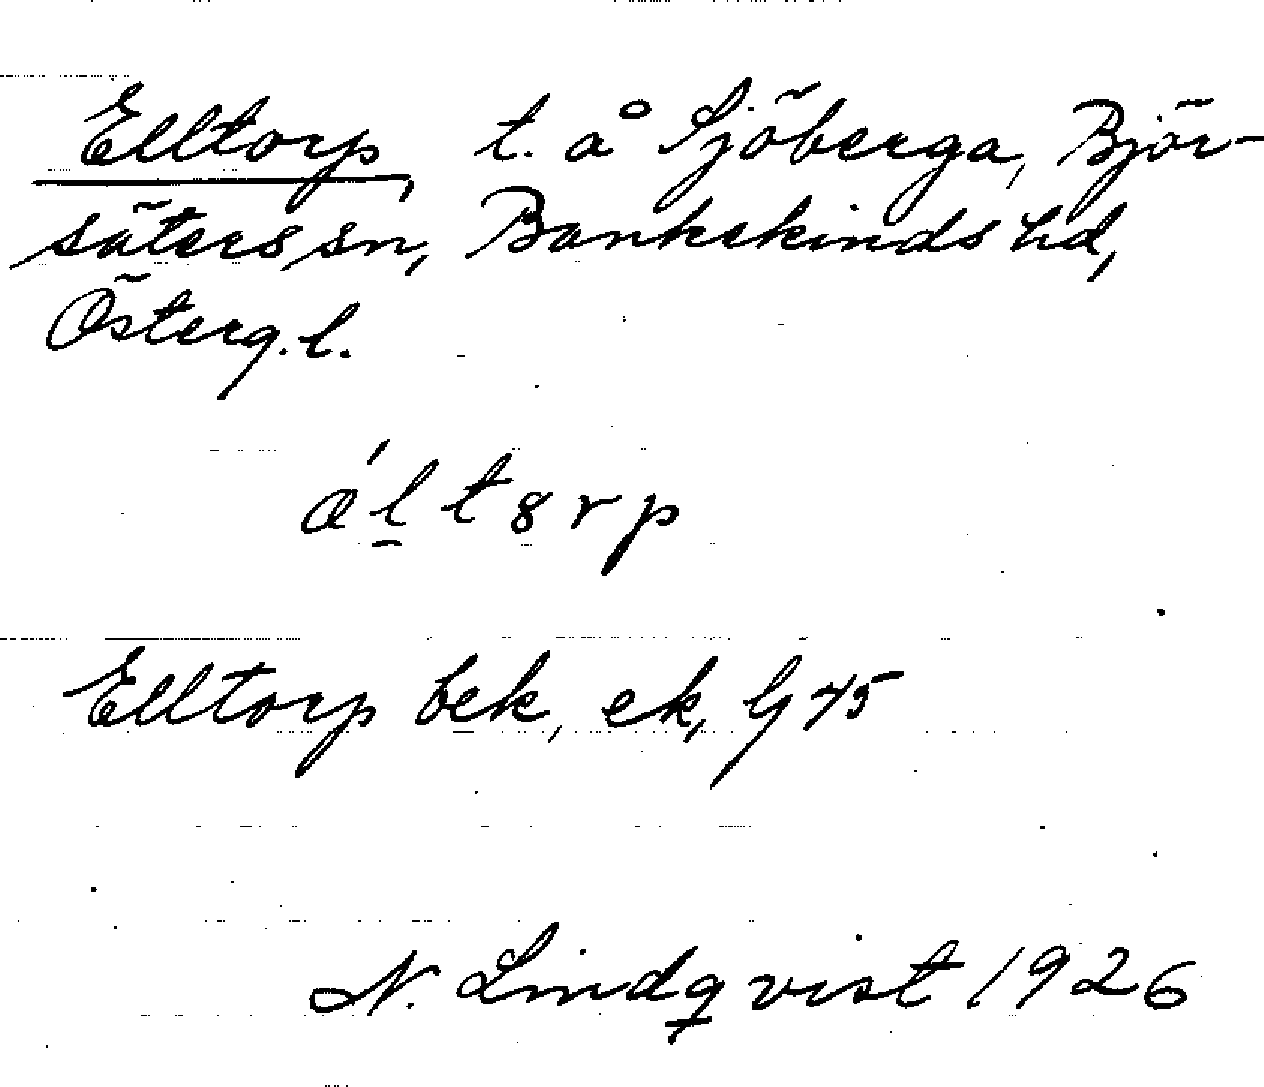 Elltorp, t. å Sjöberga, Björ-
säters sn, Bankekinds hd,
Österg. l.
Elltorp bek, ek, Gj 45
N. Lindqvist 1926